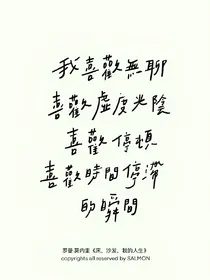 我喜歡無聊
喜歡虛度光陰
喜歡停頓
喜歡時間停滯
的瞬間
罗曼·莫内里《床，沙发，我的人生》
copyrights all reserved by SALMON